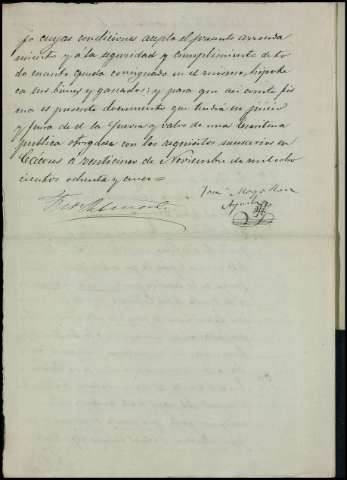 jo cuyas condiciones acepta el presente arrenda
miento y á la seguridad y cumplimiento de to
do cuanto queda consignado en el mismo, hipote
ca sus bienes y ganados: y para que así conste fir
ma el presente documento que tendrá en juicio
y fuera de él la fuerza y valor de una escritura
publica otorgada con los requisitos necesarios en
Cáceres á veinticinco de Noviembre de mil ocho
cientos ochenta y cinco=
José Mogollon
Aguilar